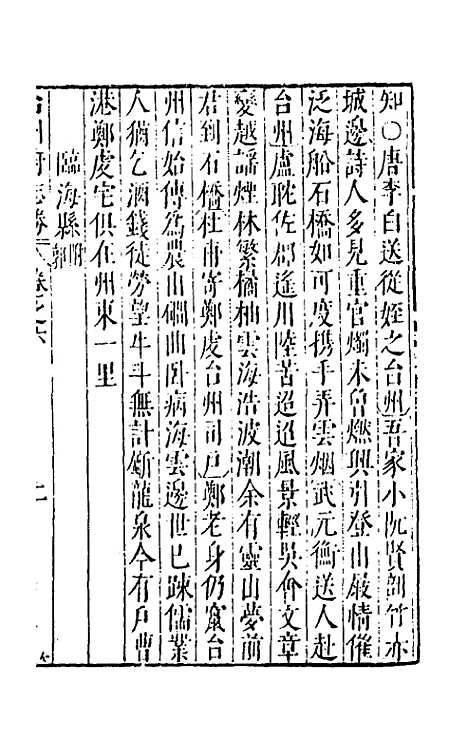 知○唐李白送從姪之台州吾家小阮賢剖竹亦
城邊詩人多見重官燭未曾燃興引登山屐情催
泛海船石橋如可度攜手弄雲烟武元衡送人赴
台州盧耽佐郡遙川陸苦迢迢風景輕吳會文章
變越謡煙林繁橘柚雲海浩波潮余有靈山夢前
君到石橋杜甫寄鄭虔台州司戶鄭老身仍竄台
州信始傳爲農山澗曲卧病海雲邊世已踈儒業
人猶乞酒錢徒勞望牛斗無計斸龍泉今有戶曹
港鄭虔宅俱在州東一里
臨海縣附郭
台州府志勝 卷之六